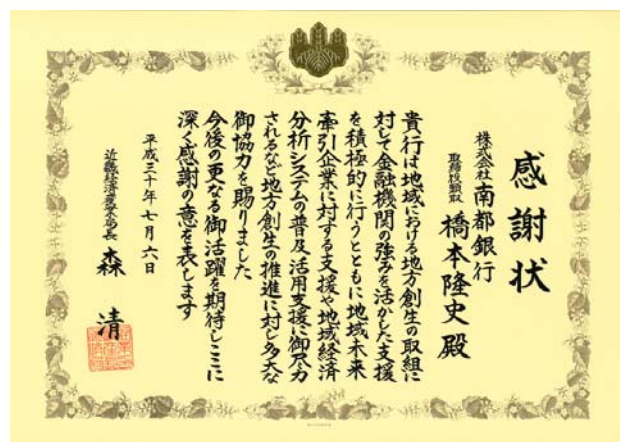 感謝状
株式会社南都銀行
取締役頭取 橋本隆史殿
貴行は地域における地方創生の取組に
対して金融機関の強みを活かした支援
を積極的に行うとともに地域未来
牽引企業に対する支援や地域経済
分析システムの普及活用支援に御尽力
されるなど地方創生の推進に対し多大な
御協力を賜りました
今後の更なる御活躍を期待しここに
深く感謝の意を表します
平成三十年七月六日
近畿経済産業局長 森 清